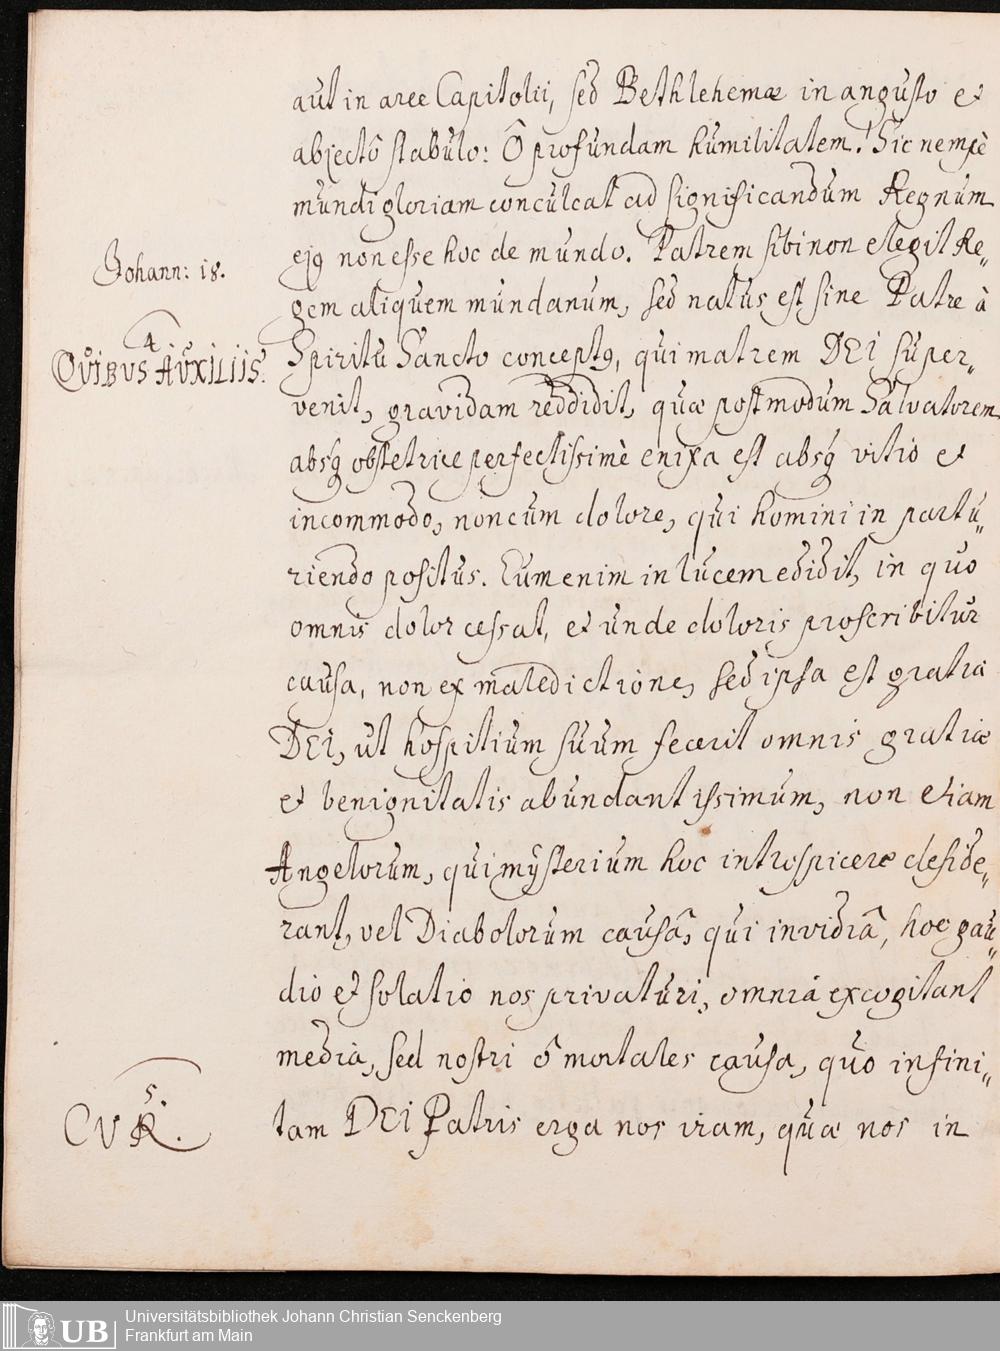 aut in arce Capitolii, sed Bethlehemæ in angusto et
abjectô stabulo: Ô profundam humilitatem! Sic nempè
mundi gloriam conculcat ad significandum Regnum
Johann: 18.
ejꝫ non esse hoc de mundo. Patrem sibi non elegit Re„
gem aliquem mundanum, sed natus est sine Patre à
4.
QVIBVS AVXILIIS.
Spiritu Sancto conceptꝫ, qui matrem DEI super„
venit, gravidam reddidit, quæ postmodum Salvatorem
absqꝫ obstetrice perfectissimè enixa est absqꝫ vitio et
incommodo, non cum dolore, qui homini in partu„
riendo positus. Eum enim in lucem edidit, in quo
omnis dolor cessat, et unde doloris proscribitur
causa, non ex maledictione, sed ipsa est gratia
DEI, ut hospitium suum fecerit omnis gratiæ
et benignitatis abundantissimum, non etiam
Angelorum, qui mÿsterium hoc introspicere deside„
rant, vel Diabolorum causâ, qui invidiâ, hoc gau„
dio et solatio nos privaturi, omnia excogitant
media, sed nostri ô mortales causa, quo infini„
5.
CVR.
tam DEI Patris erga nos iram, quæ nos in
Universitätsbibliothek Johann Christian Senckenberg
Frankfurt am Main
UB